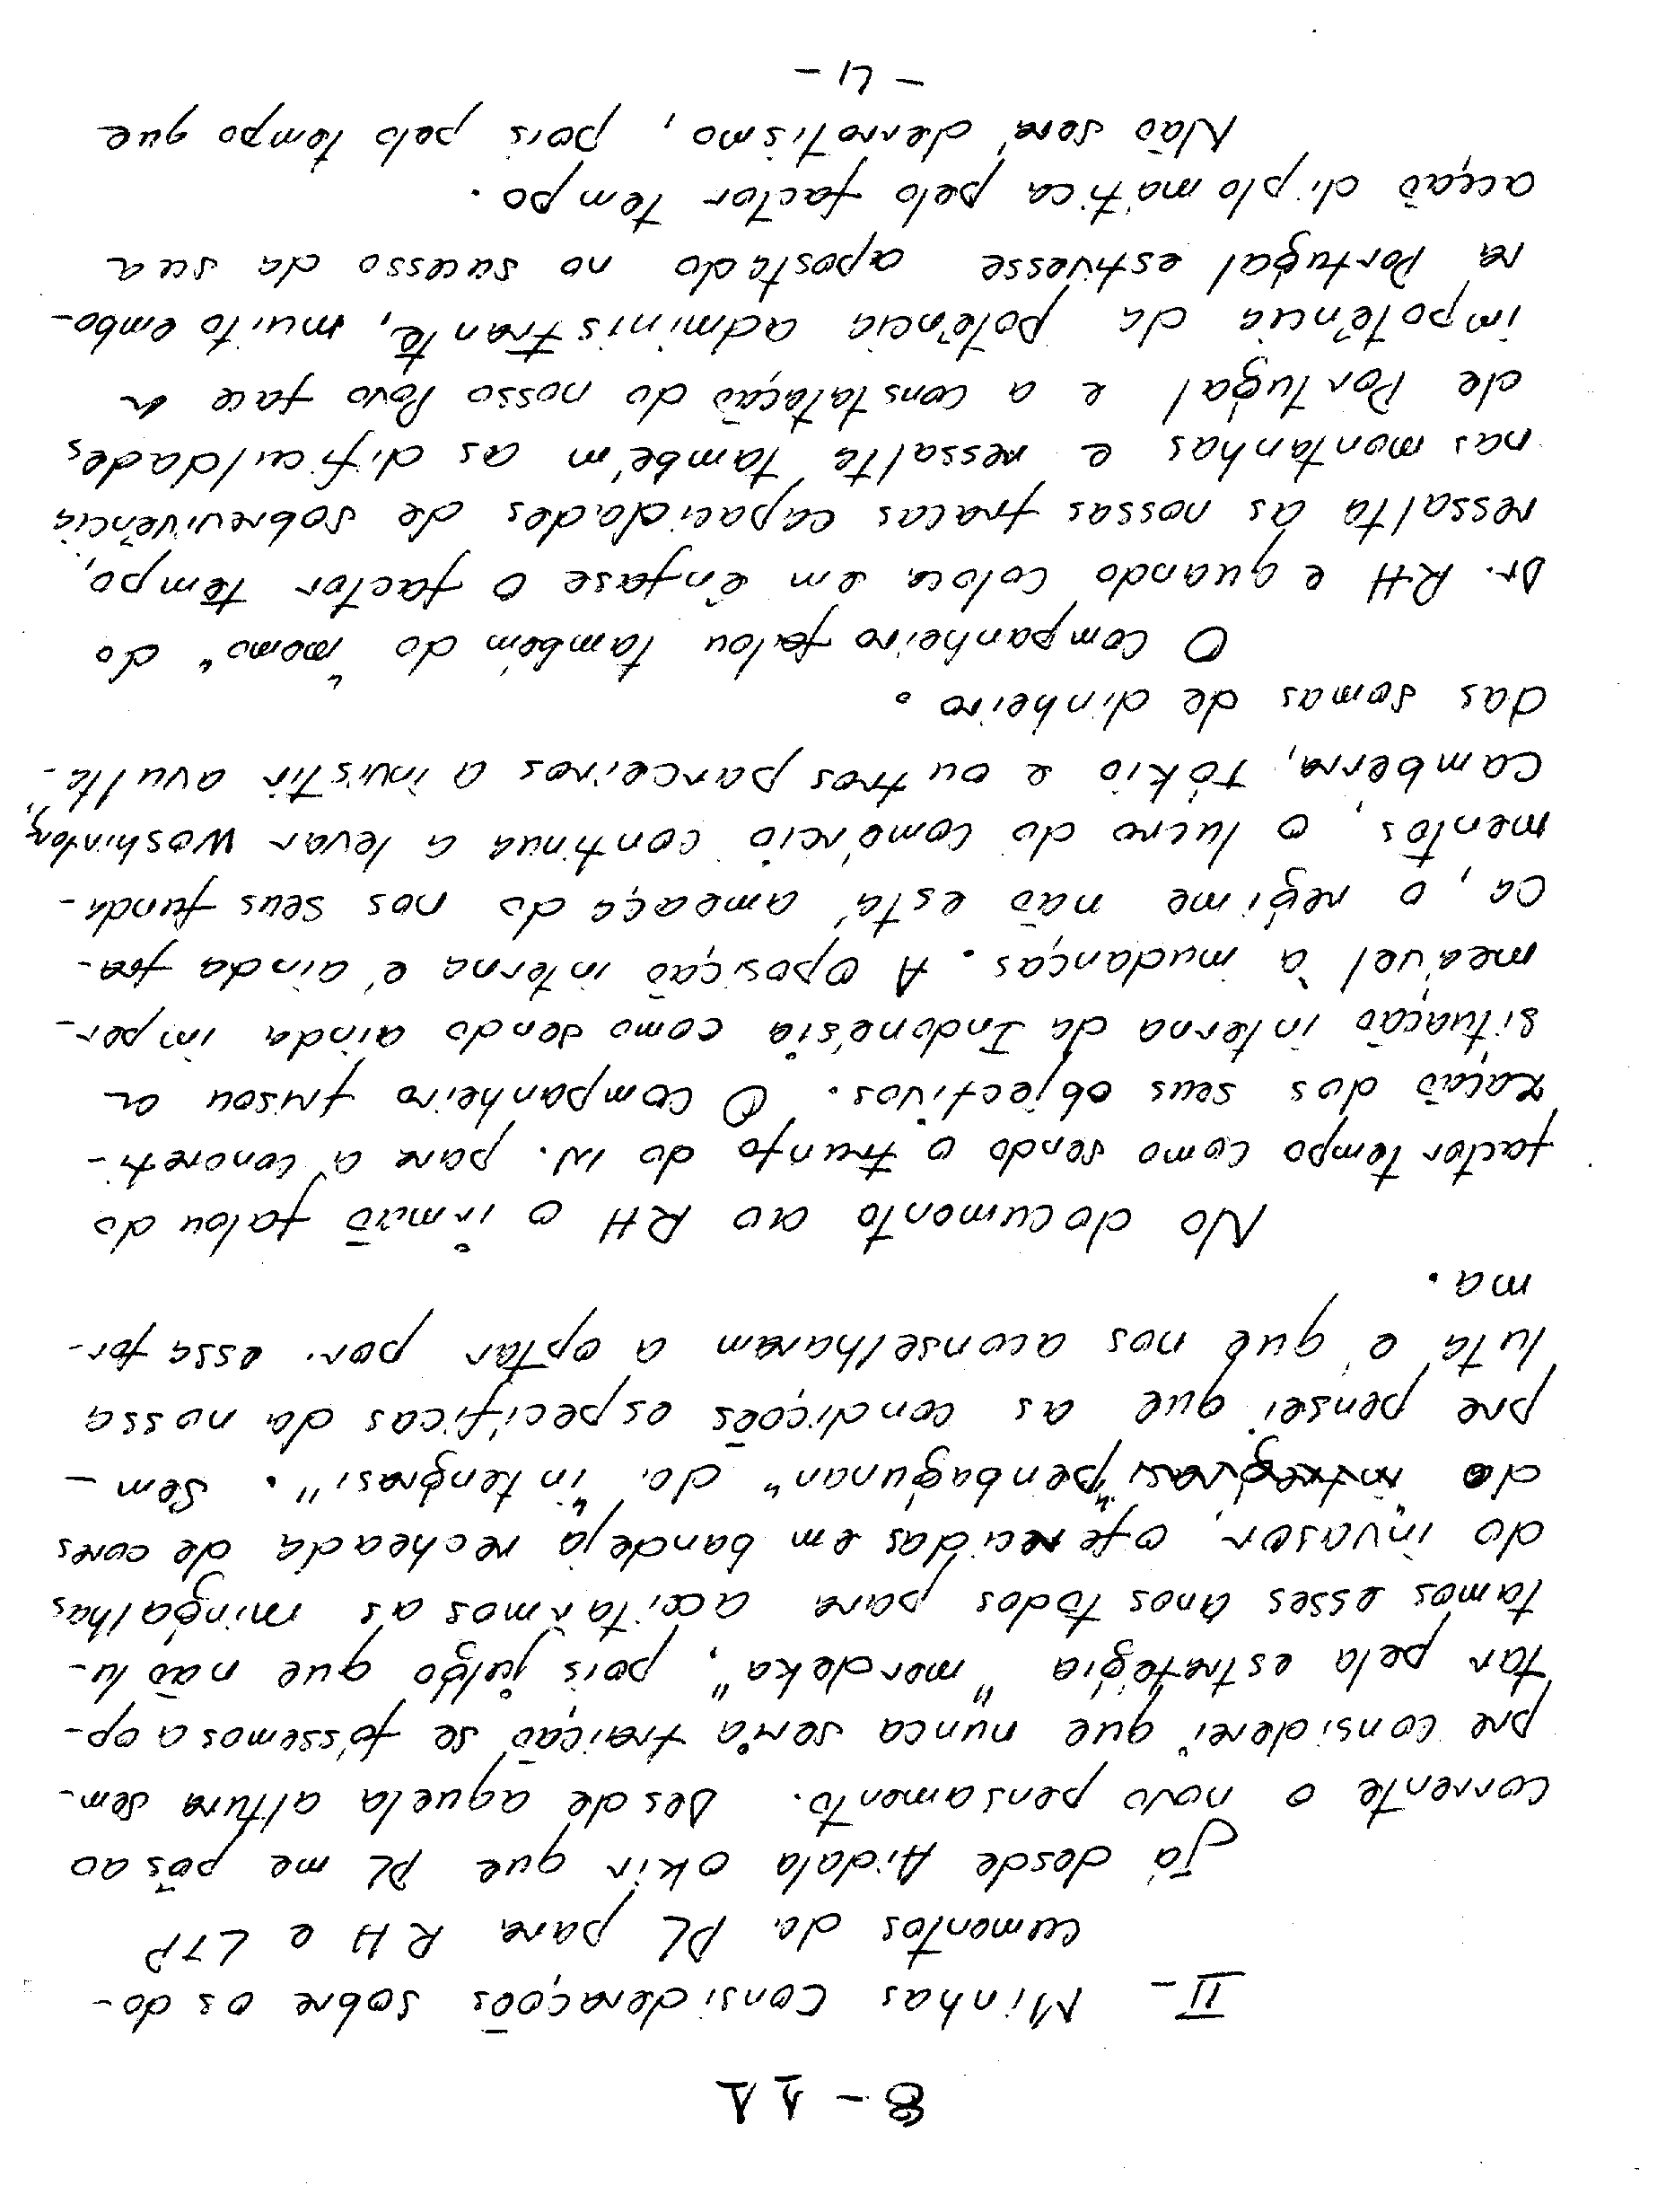 8-11
II- Minhas considerações sobre os do-
cumentos da PL para RH e LTP
Já desde Aidala okir que PL me pôs ao
corrente o novo pensamento. Desde aquela altura sem-
pre considerei que nunca seria traição se fossemos a op-
tar pela estratégia "merdeka", pois julgo que não lu-
tamos esses anos todos para aceitarmos as mingalhas
do invasor, oferecidas em bandeja recheada de cores
do "penbagunan" da "intengrasi". Sem-
pre pensei que as condições especificas da nossa
luta é que nos aconselharam a optar por essa for-
ma.
No documento ao RH o irmão falou do
factor tempo como sendo o trunfo do in. para a concreti-
zação dos seus objectivos. O companheiro frisou a
situação interna da Indonésia como sendo ainda imper-
meável à mudanças. A oposição interna é ainda fra-
ca, o regime não está ameaçado nos seus funda-
mentos, o lucro do comércio continua a levar Woshinton,
Camberra, Tókio e outros parceiros a invistir avulta-
das somas de dinheiro.
O companheiro falou também do "memo" do
Dr. RH e quando coloca em ênfase o factor tempo,
ressalta as nossas fracas capacidades de sobrevivência
nas montanhas e ressalta também as dificuldades
de Portugal e a constatação do nosso Povo face a
impotência da potência administrante, muito embo-
ra Portugal estivesse apostado no sucesso da sua
acção diplomática pelo factor tempo.
Não será derrotismo, pois pelo tempo que
-4-